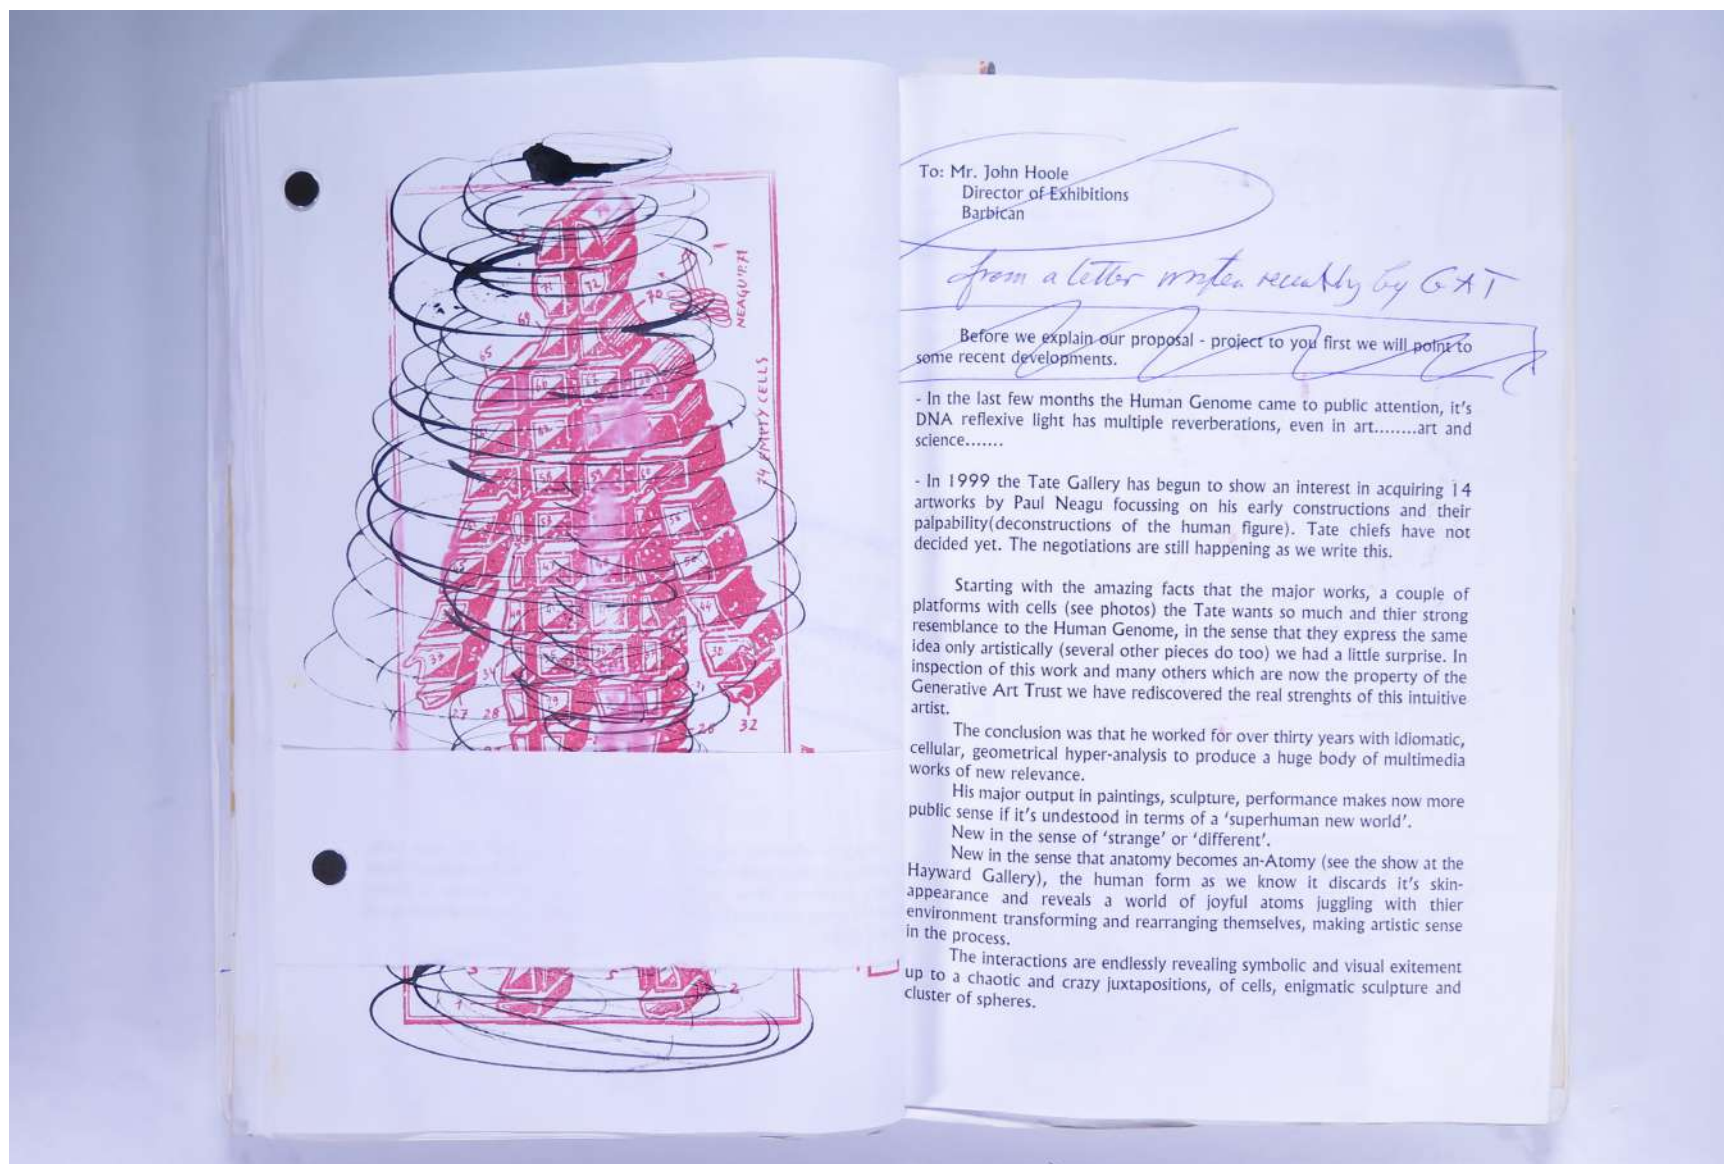 NEAGU P. 71
74 EMPTY CELLS
74
71
72
70
69
65
44
37
34
27
28
29
32
30
3
5
1
2
To: Mr. John Hoole
Director of Exhibitions
Barbican
from a letter written recently by GAT
Before we explain our proposal - project to you first we will point to
some recent developments.
- In the last few months the Human Genome came to public attention, it's
DNA reflexive light has multiple reverberations, even in art........art and
science.......
- In 1999 the Tate Gallery has begun to show an interest in acquiring 14
artworks by Paul Neagu focussing on his early constructions and their
palpability(deconstructions of the human figure). Tate chiefs have not
decided yet. The negotiations are still happening as we write this.
Starting with the amazing facts that the major works, a couple of
platforms with cells (see photos) the Tate wants so much and thier strong
resemblance to the Human Genome, in the sense that they express the same
idea only artistically (several other pieces do too) we had a little surprise. In
inspection of this work and many others which are now the property of the
Generative Art Trust we have rediscovered the real strenghts of this intuitive
artist.
The conclusion was that he worked for over thirty years with idiomatic,
cellular, geometrical hyper-analysis to produce a huge body of multimedia
works of new relevance.
His major output in paintings, sculpture, performance makes now more
public sense if it's undestood in terms of a ‘superhuman new world’.
New in the sense of ‘strange’ or ‘different’.
New in the sense that anatomy becomes an-Atomy (see the show at the
Hayward Gallery), the human form as we know it discards it's skin-
appearance and reveals a world of joyful atoms juggling with thier
environment transforming and rearranging themselves, making artistic sense
in the process.
The interactions are endlessly revealing symbolic and visual exitement
up to a chaotic and crazy juxtapositions, of cells, enigmatic sculpture and
cluster of spheres.